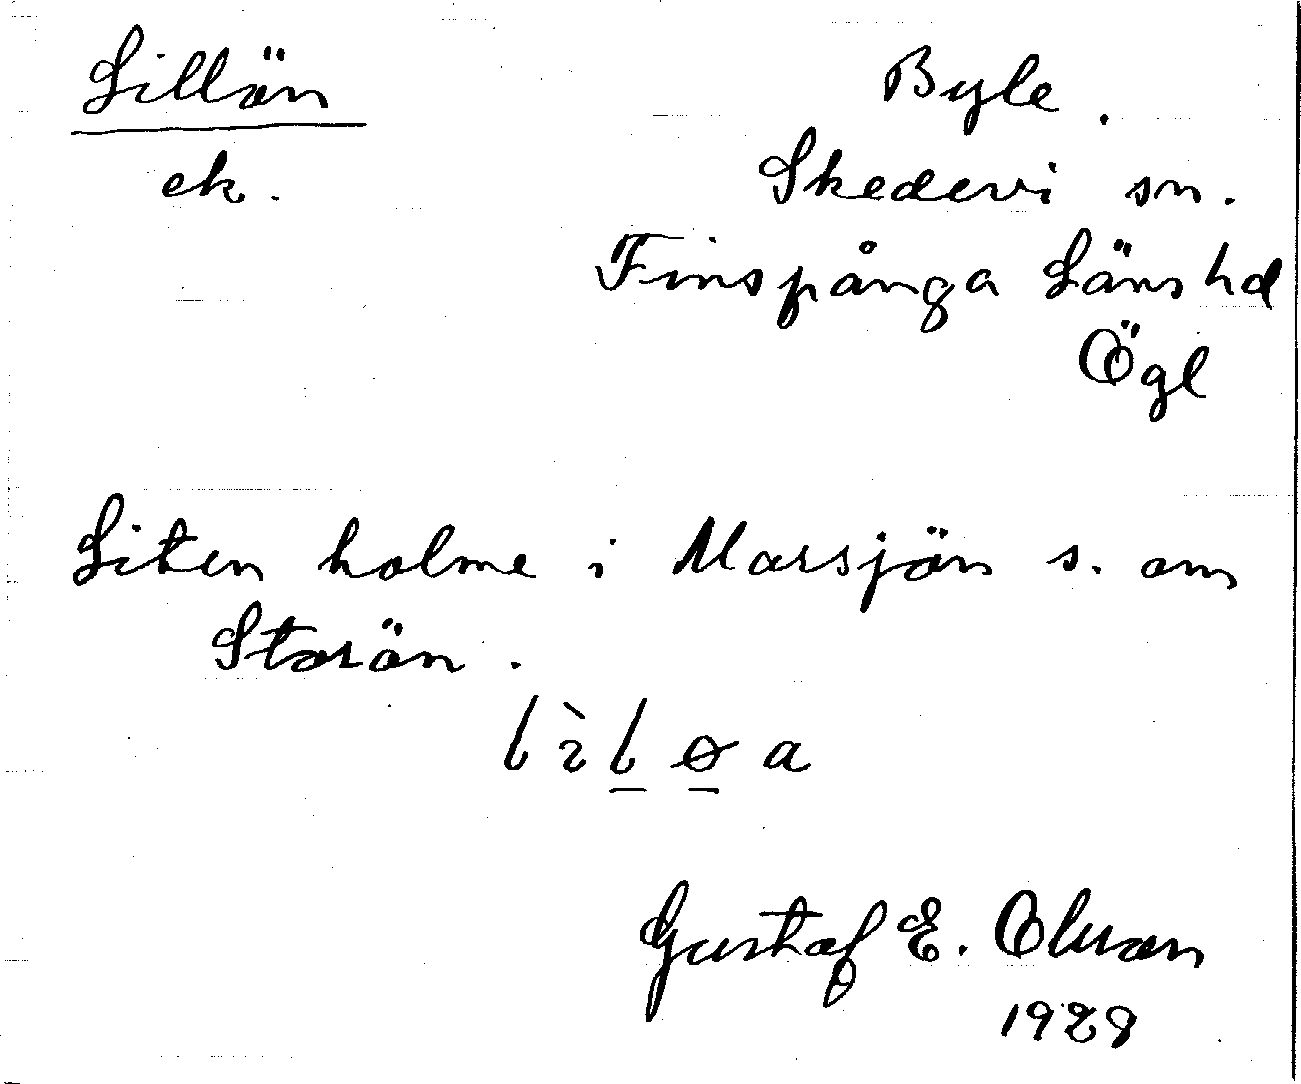 Lillön Byle.
ek. Skedevi sn.
Finspånga Läns hd
Ögl
Liten holme i Marsjön s. om
Storön.
Gustaf E. Olsson
1928